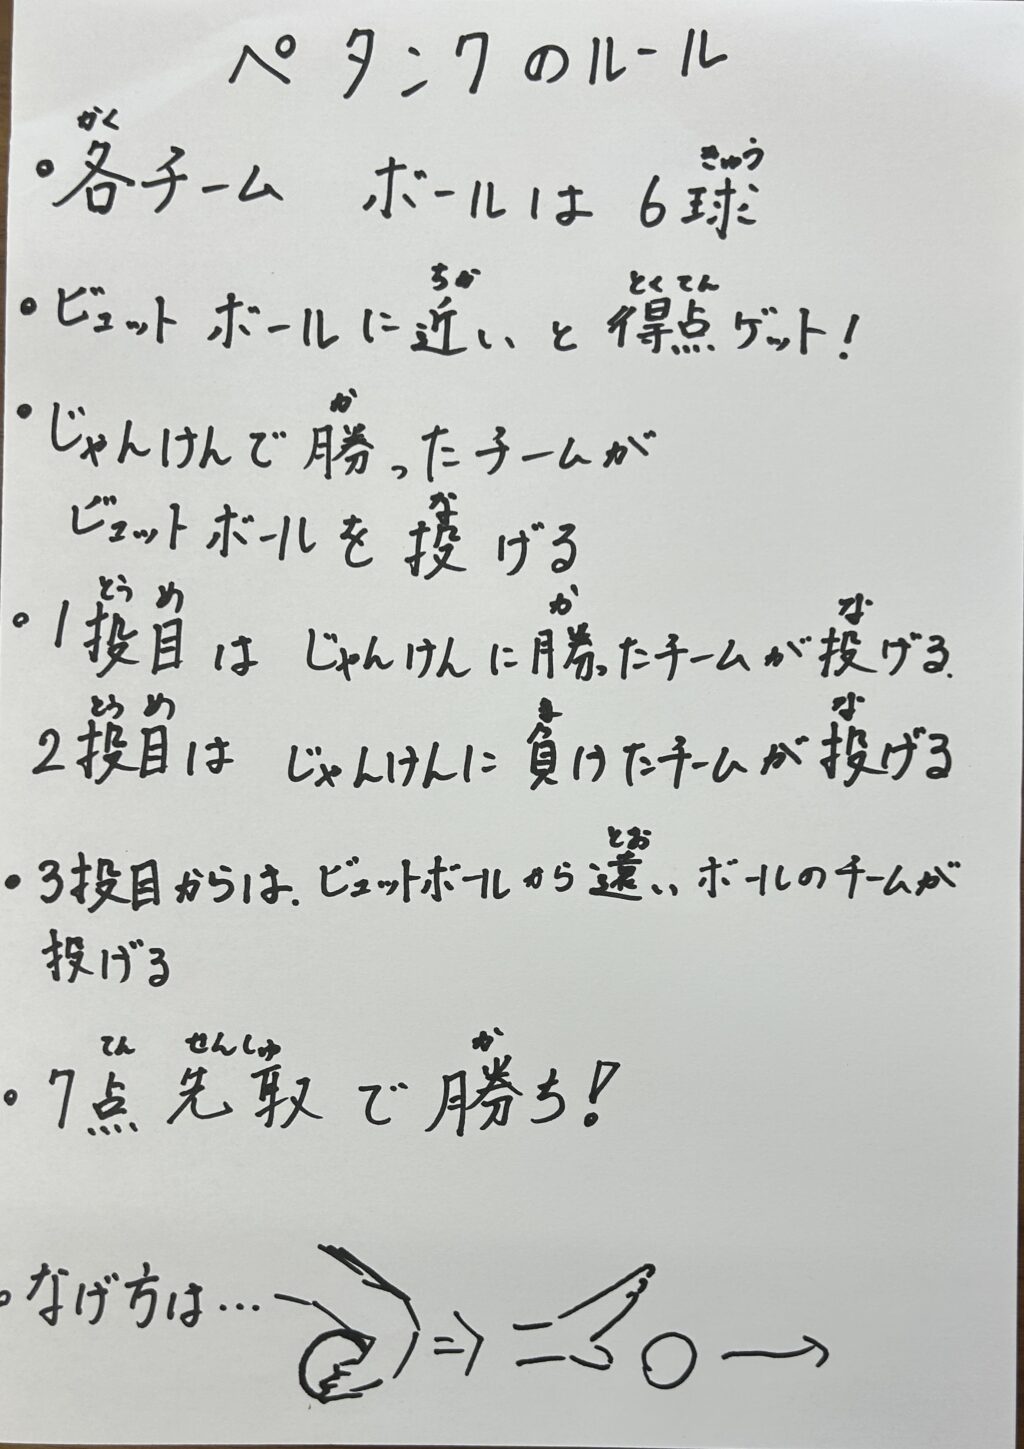 ペタンクのルール
かく きゅう
・各チーム ボールは 6球
ちか とくてん
・ビュットボールに近いと得点ゲット!
か
・じゃんけんで勝ったチームが
な
ビュットボールを投げる
とうめ か な
・1投目は じゃんけんに勝ったチームが投げる.
とうめ ま な
2投目は じゃんけんに負けたチームが投げる
とお
・3投目からは.ビュットボールから遠いボールのチームが
投げる
てん せんしゅ か
・7点先取で勝ち!
・なげ方は…